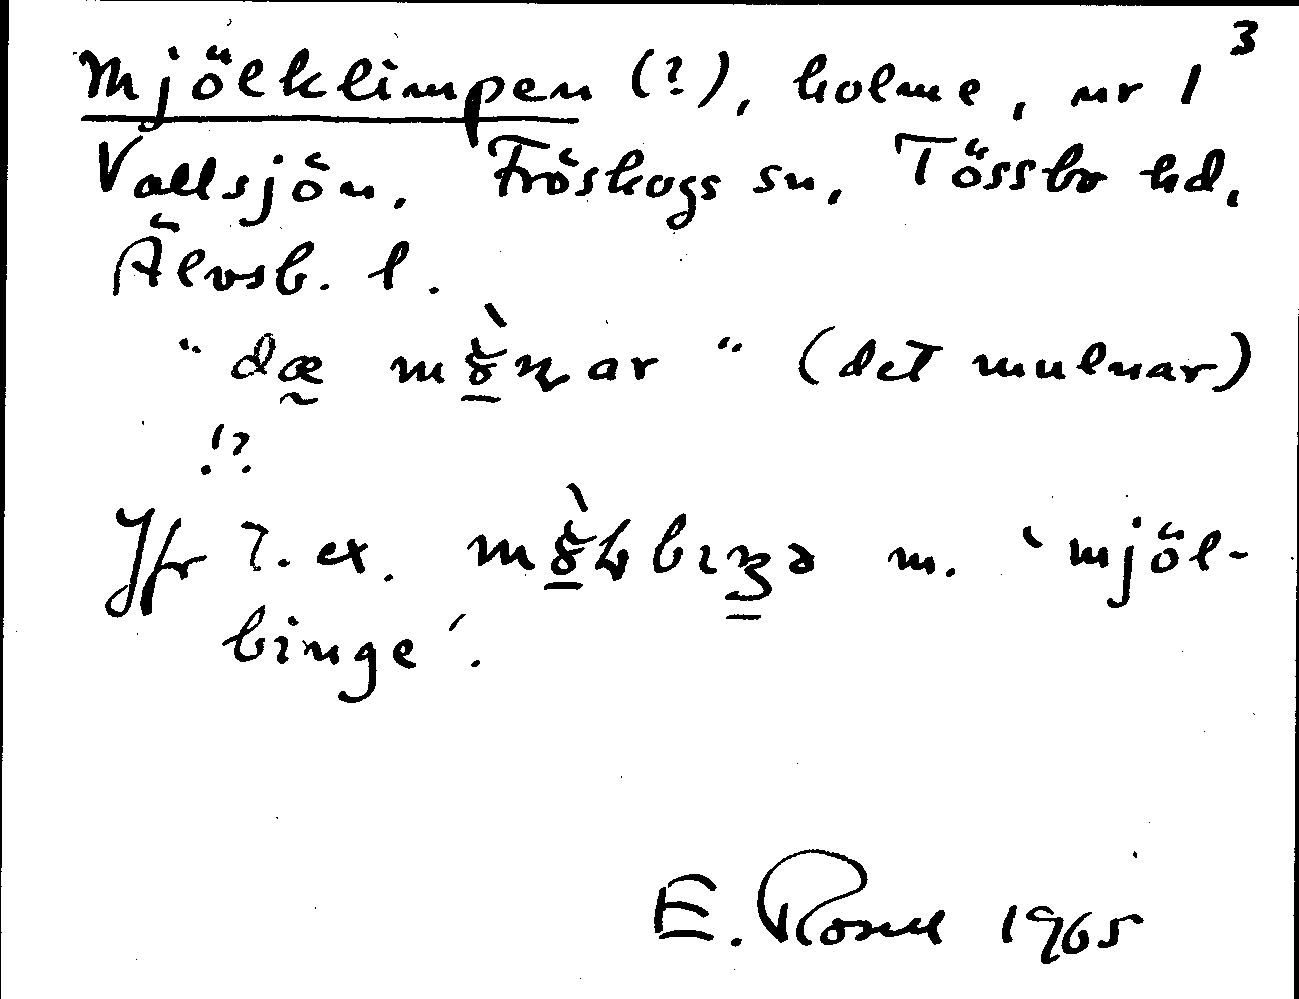 3
Mjölklimpen (?), holme, nr 1
Vallsjön. Fröskogs sn, Tössbo hd,
Älvsb. l.
" dæ ar " (det mulnar)
!?
Jfr t. ex. m. 'mjöl-
binge'.
E. 1965